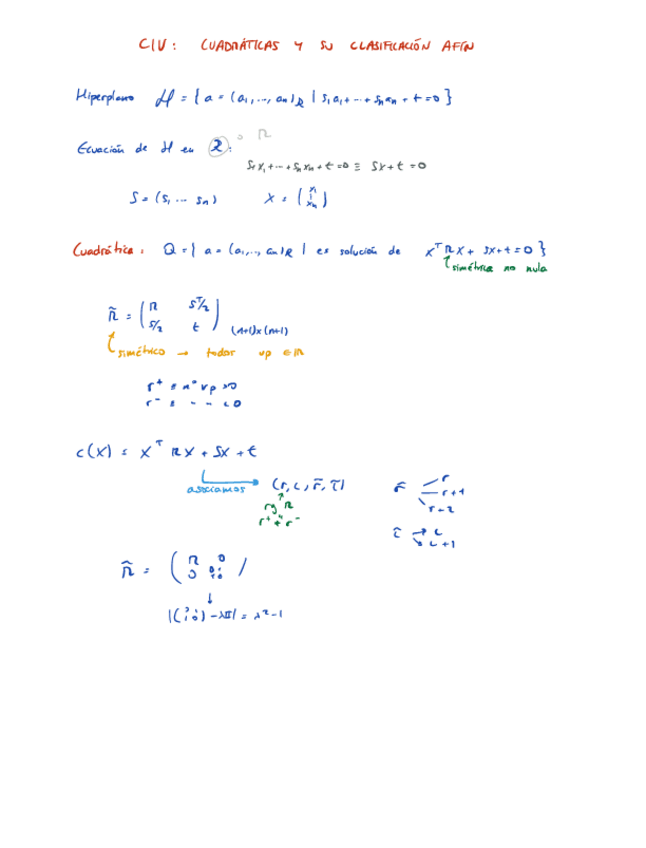 CIV: CUADRÁTICAS Y SU CLASIFICACIÓN AFÍN
Hiperplano H = { a = (a₁, ..., aₙ)_R | s₁a₁ + ... + sₙaₙ + t = 0 }
Ecuación de H en R:
s₁x₁ + ... + sₙxₙ + t = 0 ≡ Sx + t = 0
S = (s₁ ... sₙ) X = (x₁ ⋮ xₙ)
Cuadrática: Q = { a = (a₁, ..., aₙ)_R | es solución de xᵀRx + Sx + t = 0 }
simétrica no nula
R̃ = ( R Sᵀ/2
S/2 t ) (n+1)x(n+1)
simétrica → todos vp ∈ ℝ
r⁺ ≡ nº vp > 0
r⁻ ≡ " " < 0
c(X) = Xᵀ R X + SX + t
asociamos (r, c, r̃, c̃)
rg R
r⁺ + r⁻
r̃ r
r+1
r+2
c̃ → c
c+1
R̃ = ( R 0
0 0 1
1 0 )
↓
|(0 1
1 0) - λII| = λ² - 1